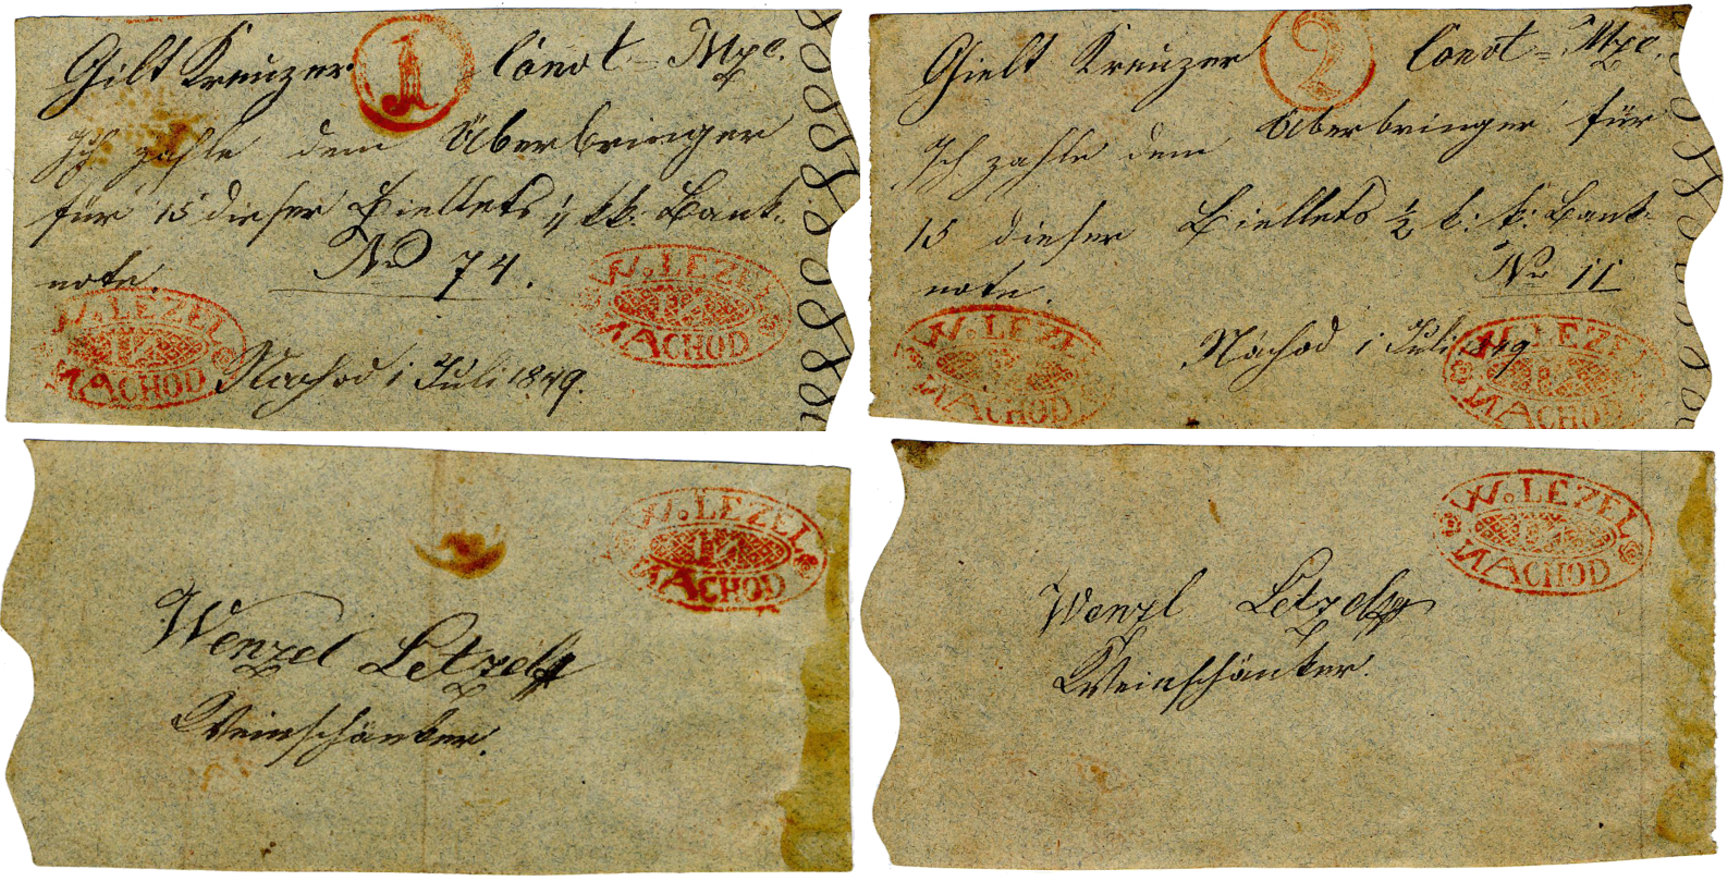 Gilt Kreuzer 1 Convt = Mze.
Ich zahle dem Überbringer
für 15 dieser Biellets ¼ kk. Bank-
note.
No 74.
W. LEZEL
NACHOD
W. LEZEL
NACHOD
Nachod 1 Juli 1849.
Gielt Kreuzer 2 Convt = Mze.
Ich zahle dem Überbringer für
15 dieser Biellets ½ k: k: Bank-
note.
No 11
W. LEZEL
NACHOD
Nachod 1 Juli 849
W. LEZEL
NACHOD
W. LEZEL
NACHOD
Wenzel Letzel
Weinschänker.
W. LEZEL
NACHOD
Wenzl Letzel
Weinschänker.